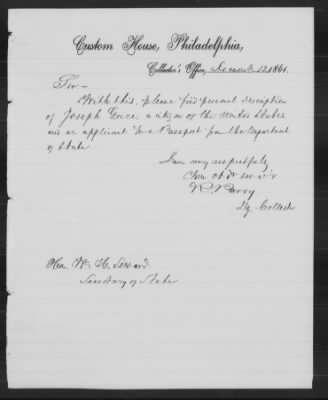 Custom House, Philadelphia,
Collector's Office, December 12, 1861.
Sir—
With this, please find personal description
of Joseph a citizen of the United States
and an applicant for a Passport from the Department
of State
I am very respectfully
Your obdt servt
Dy. Collector
Hon. Wm. H. Seward
Secretary of State